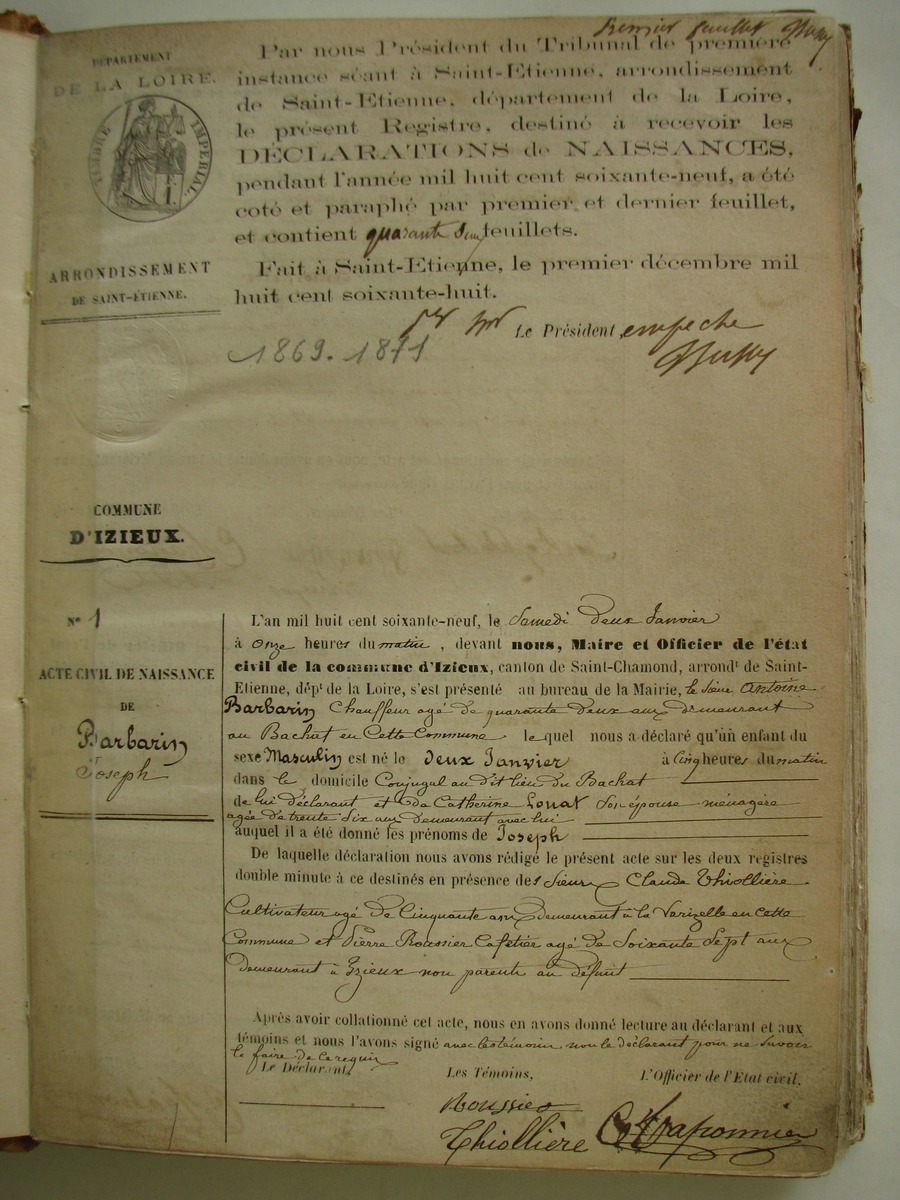 Premier feuillet
DÉPARTEMENT
DE LA LOIRE.
TIMBRE IMPÉRIAL.
ARRONDISSEMENT
DE SAINT-ÉTIENNE.
Par nous Président du Tribunal de première
instance séant à Saint-Etienne, arrondissement
de Saint-Etienne, département de la Loire,
le présent Registre, destiné à recevoir les
DÉCLARATIONS de NAISSANCES,
pendant l'année mil huit cent soixante-neuf, a été
coté et paraphé par premier et dernier feuillet,
et contient quarante feuillets.
Fait à Saint-Etienne, le premier décembre mil
huit cent soixante-huit.
Le Président, empeche
1869-1871
COMMUNE
D'IZIEUX.
N° 1
ACTE CIVIL DE NAISSANCE
DE
Barbarin
Joseph
L'an mil huit cent soixante-neuf, le Samedi deux Janvier
à onze heures du matin, devant nous, Maire et Officier de l'état
civil de la commune d'Izieux, canton de Saint-Chamond, arrondt de Saint-
Etienne, dépt de la Loire, s'est présenté au bureau de la Mairie, le sieur Antoine
Barbarin Chauffeur agé de quarante deux ans demeurant
au Bachat en Cette Commune le quel nous a déclaré qu'un enfant du
sexe Masculin est né le Deux Janvier à Cinq heures du matin
dans le domicile Conjugal au dit lieu du Bachat
de lui déclarant et de Catherine Louat son épouse ménagère
agée de trente six ans demeurant avec lui
auquel il a été donné les prénoms de Joseph
De laquelle déclaration nous avons rédigé le présent acte sur les deux registres
double minute à ce destinés en présence des Sieurs Claude Thiollière
Cultivateur agé de Cinquante ans demeurant à la Varizelle en cette
Commune et Pierre Roussier Cafetier agé de Soixante Sept ans
demeurant à Izieux non parents au défunt
Après avoir collationné cet acte, nous en avons donné lecture au déclarant et aux
témoins et nous l'avons signé avec les témoins non le déclarant pour ne savoir
le faire de ce requis
Le Déclarant, Les Témoins, L'Officier de l'Etat civil.
Roussier
Thiollière